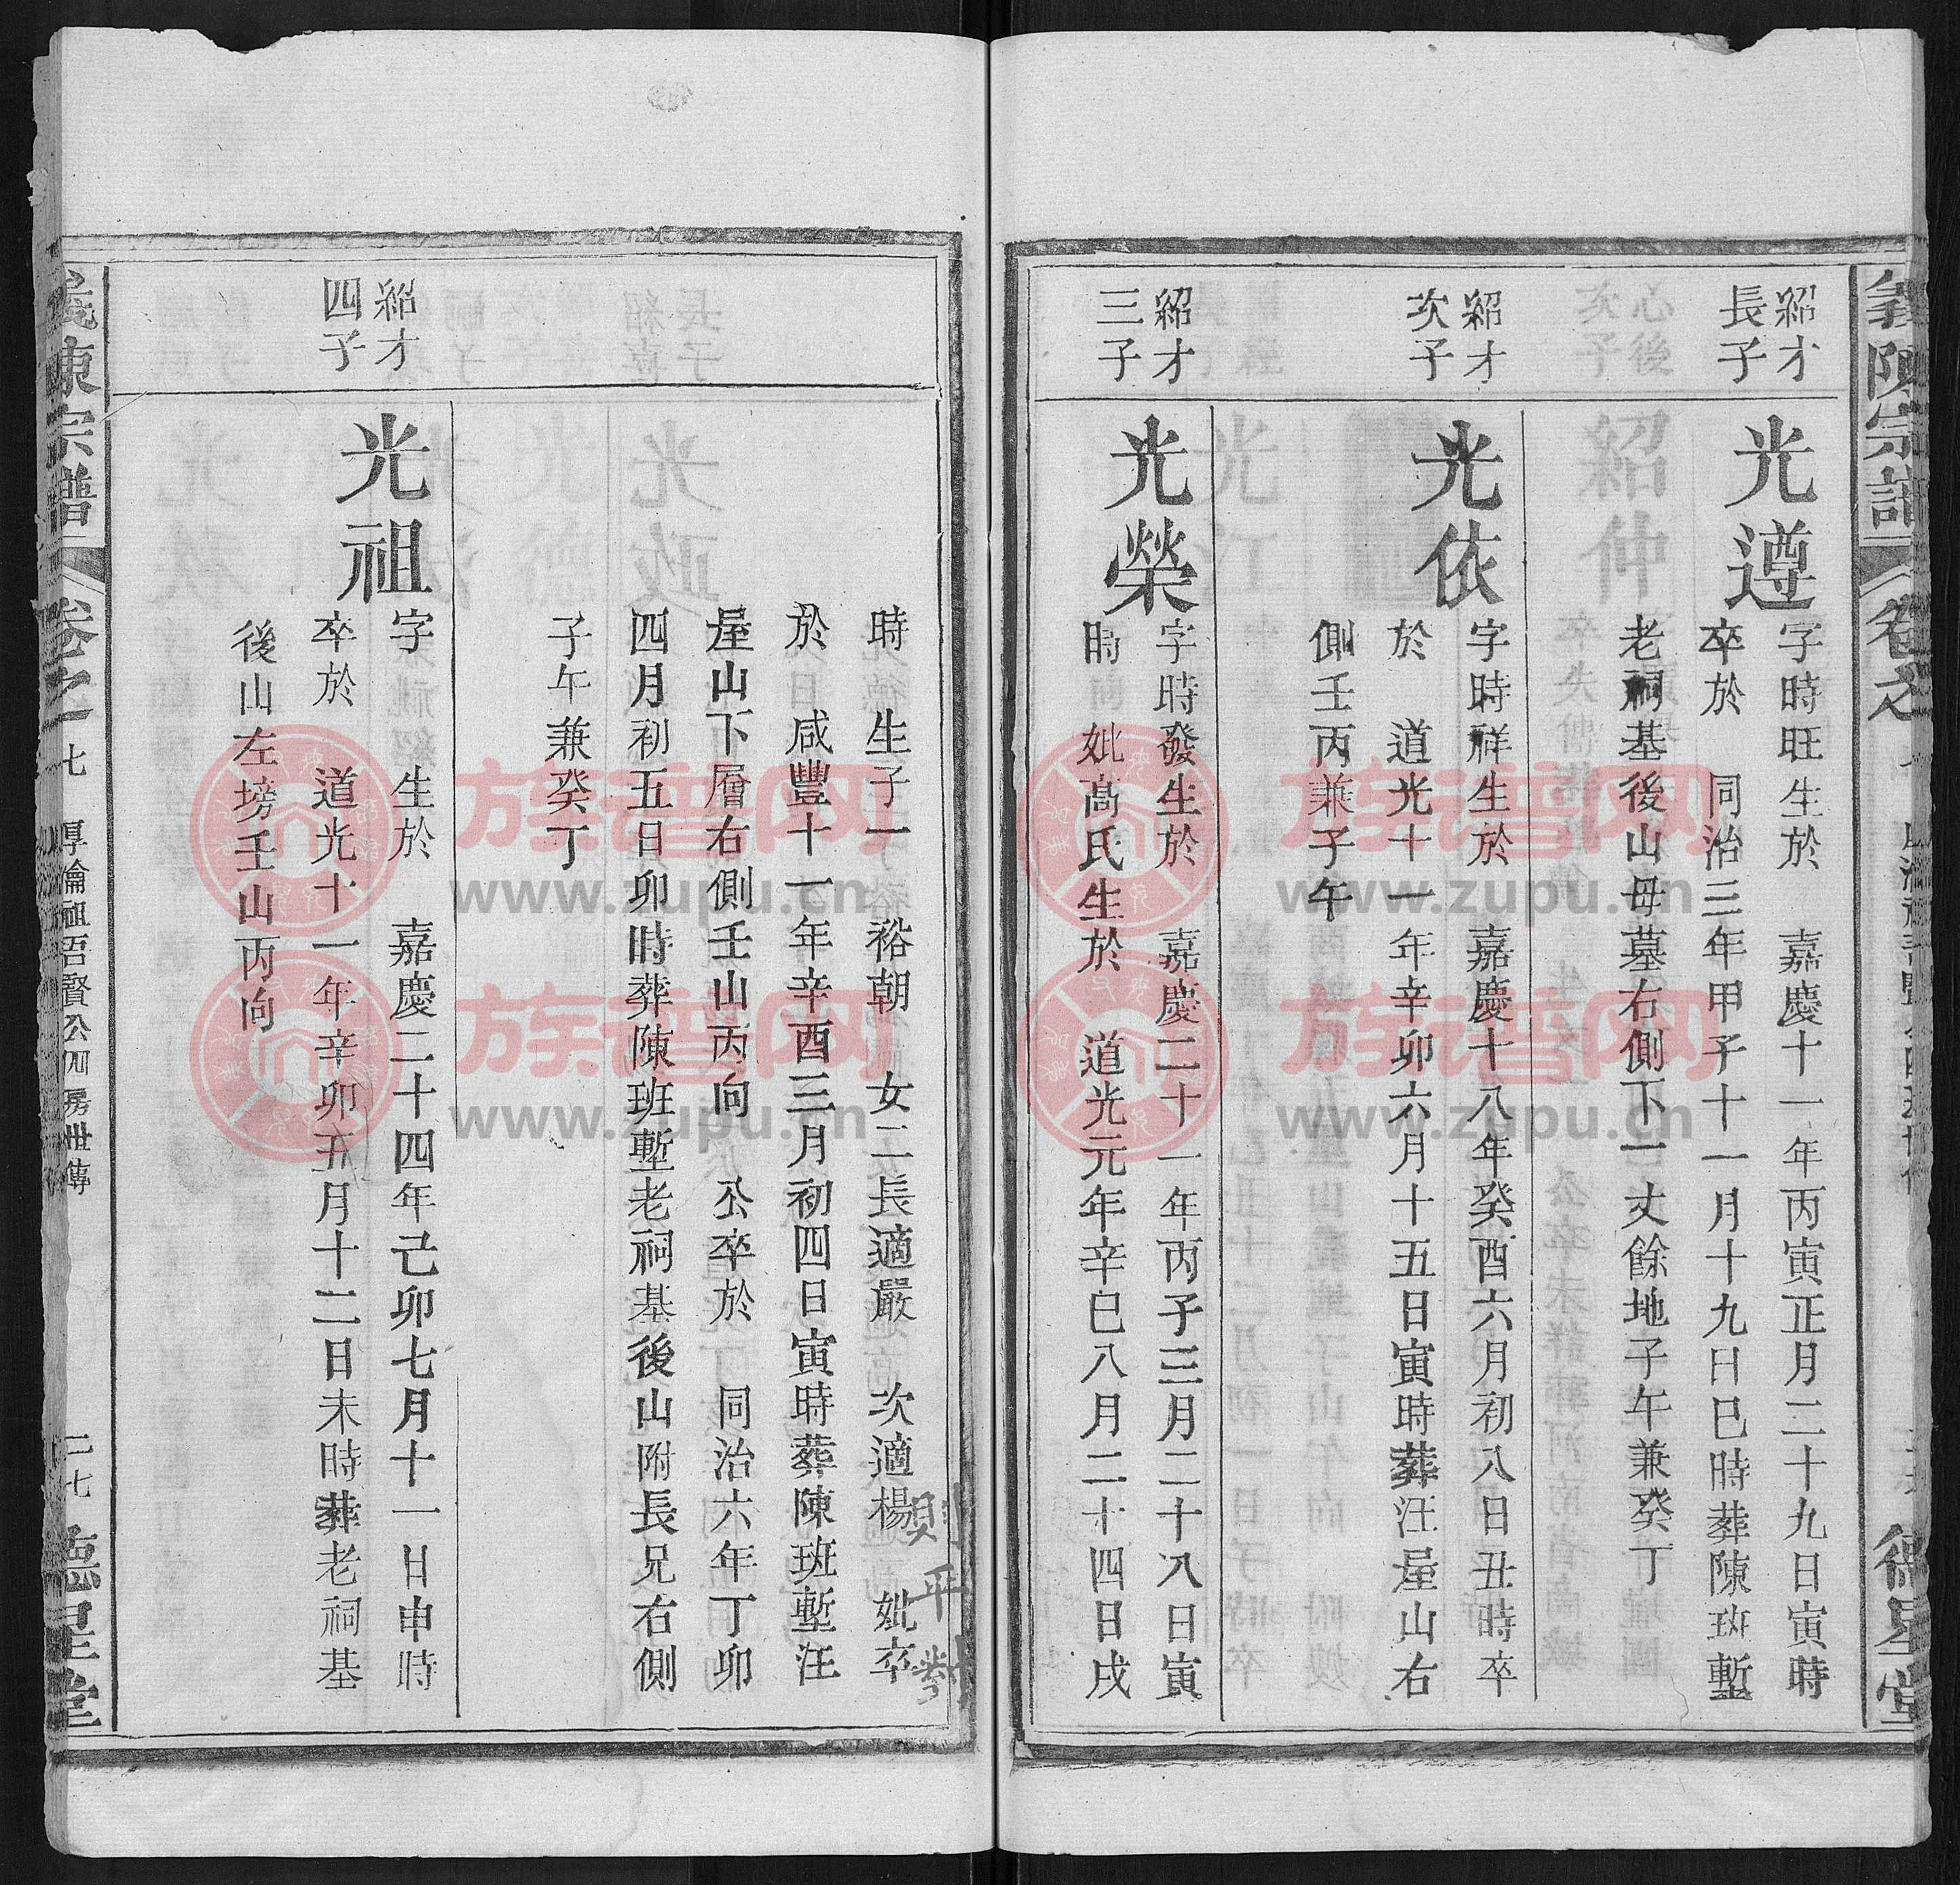 義陳宗譜
卷之
德星堂
紹才
長子
光遵
字時旺生於 嘉慶十一年丙寅正月二十九日寅時
卒於 同治三年甲子十一月十九日巳時葬陳班塹
老祠基後山母墓右側下一丈餘地子午兼癸丁
紹才
次子
光依
字時祥生於 嘉慶十八年癸酉六月初八日丑時卒
於 道光十一年辛卯六月十五日寅時葬汪屋山右
側壬丙兼子午
紹才
三子
光榮
字時發生於 嘉慶二十一年丙子三月二十八日寅
時 妣高氏生於 道光元年辛巳八月二十四日戌
時 生子一 裕朝 女二長適嚴 次適楊 妣卒
於 咸豐十一年辛酉三月初四日寅時葬陳班塹汪
屋山下層右側壬山丙向 公卒於 同治六年丁卯
四月初五日卯時葬陳班塹老祠基後山附長兄右側
子午兼癸丁
紹才
四子
光祖
字 生於 嘉慶二十四年己卯七月十一日申時
卒於 道光十一年辛卯五月十二日未時葬老祠基
後山左塝壬山丙向
義陳宗譜
卷之一七
厚倫祖吾賢公四房世傳
二七
德星堂
族譜网
www.zupu.cn
族譜网
www.zupu.cn
族譜网
www.zupu.cn
族譜网
www.zupu.cn